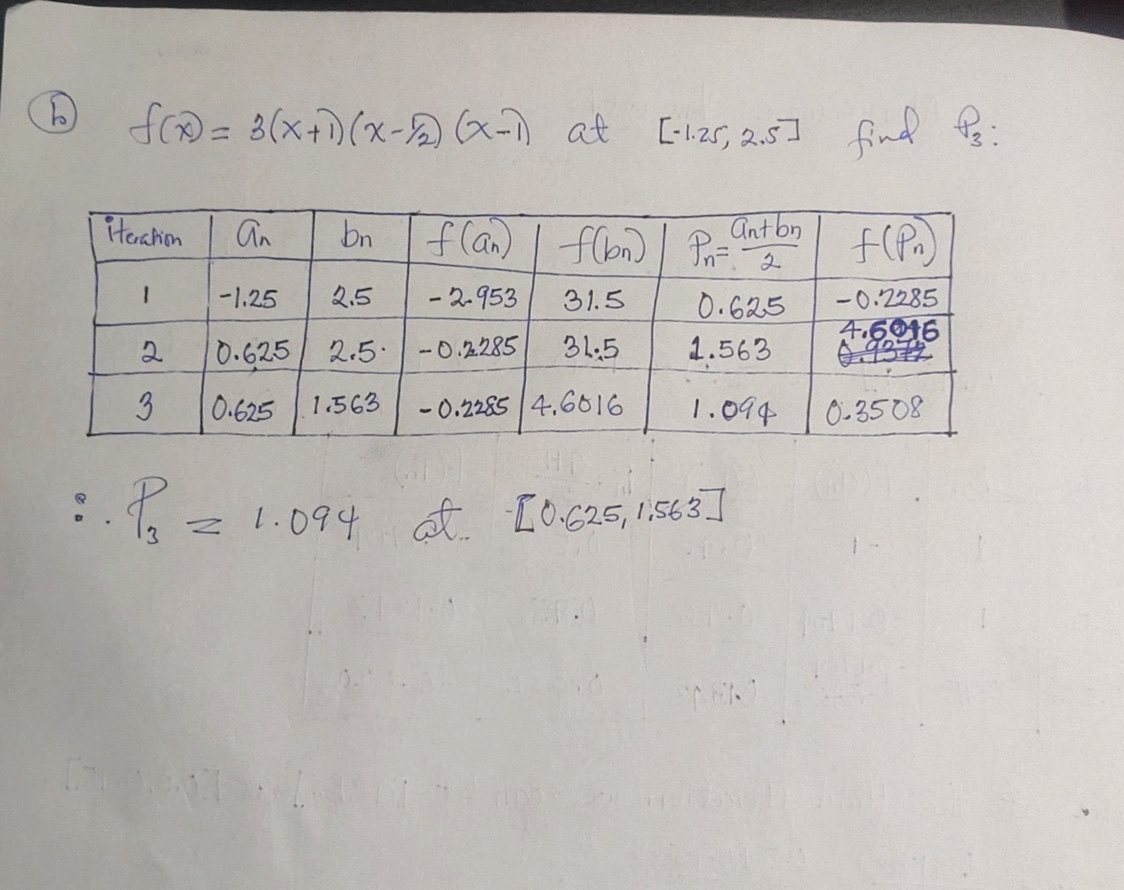 (b) f(x) = 3(x+1)(x-1/2)(x-1) at [-1.25, 2.5] find P₃:
iteration | an | bn | f(an) | f(bn) | Pn = (an+bn)/2 | f(Pn)
1 | -1.25 | 2.5 | -2.953 | 31.5 | 0.625 | -0.2285
2 | 0.625 | 2.5 | -0.2285 | 31.5 | 1.563 | 4.6016
3 | 0.625 | 1.563 | -0.2285 | 4.6016 | 1.094 | 0.3508
∴ P₃ = 1.094 at [0.625, 1.563]